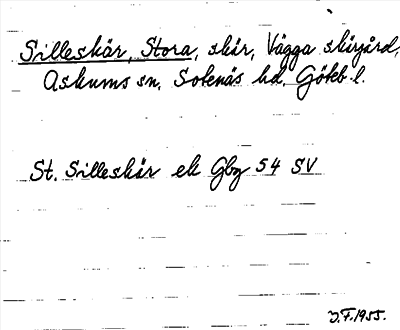 Silleskär, Stora, skär, Vägga skärgård,
Askums sn, Sotenäs hd. Göteb. l.
St. Silleskär ek Gbg 54 SV
J.F. 1955.